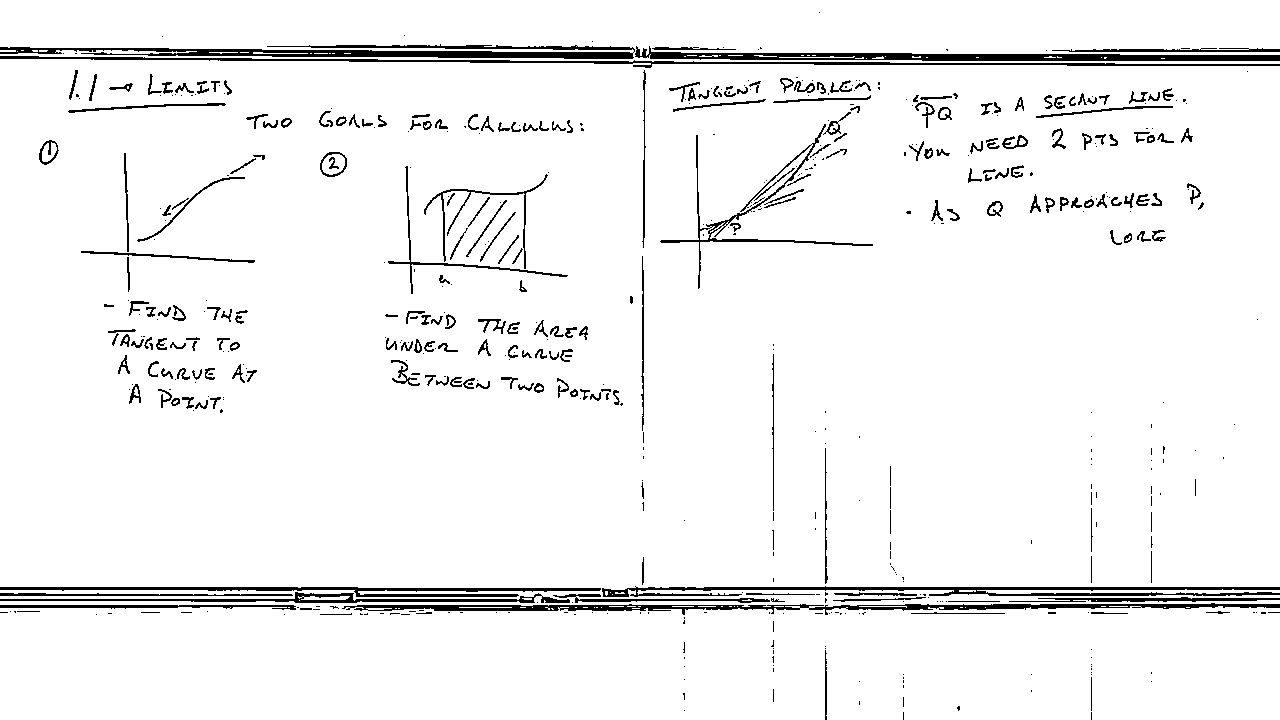 1.1 → LIMITS
TWO GOALS FOR CALCULUS:
①
②
a
b
- FIND THE
TANGENT TO
A CURVE AT
A POINT.
- FIND THE AREA
UNDER A CURVE
BETWEEN TWO POINTS.
TANGENT PROBLEM:
Q
P
PQ IS A SECANT LINE.
· YOU NEED 2 PTS FOR A
LINE.
· AS Q APPROACHES P,